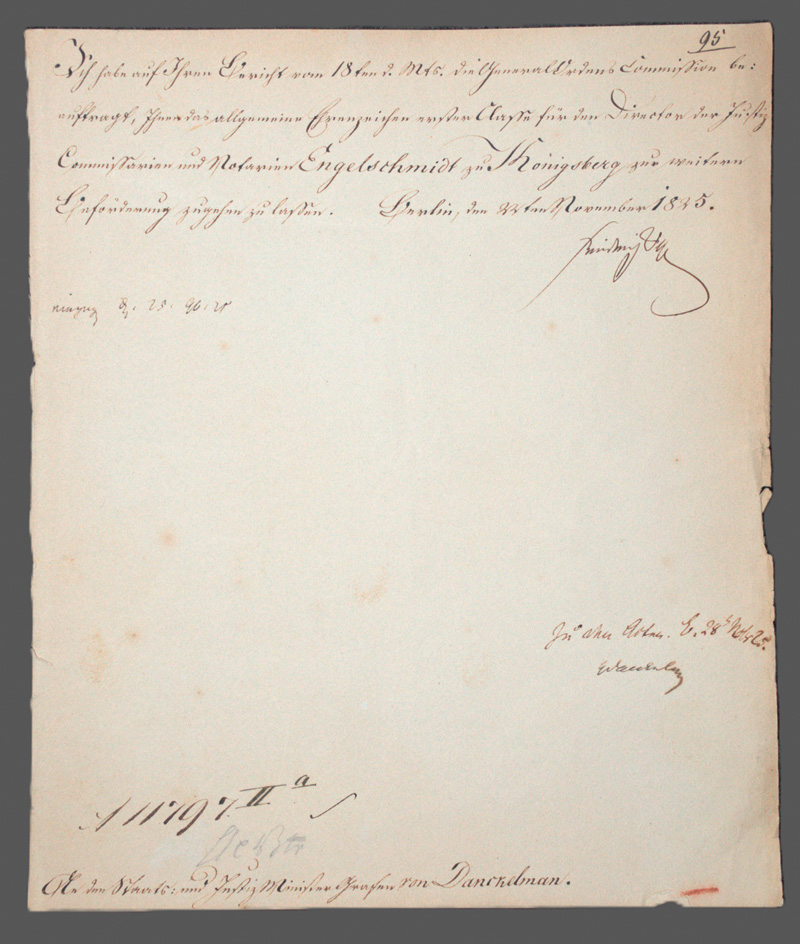 95
Ich habe auf Ihren Bericht vom 18ten d. Mts. die General Ordens Commission be=
auftragt, Ihnen das allgemeine Ehrenzeichen erster Classe für den Director der Justiz
Commissarien und Notarien Engelschmidt zu Königsberg zur weitern
Beförderung zugehen zu lassen. Berlin, den 22ten November 1825.
Friedrich Wilhelm
Zu den Acten. B. 28 Nov 25.
Danckelman
A 11797. II a
An den Staats= und Justiz Minister Grafen von Danckelman.